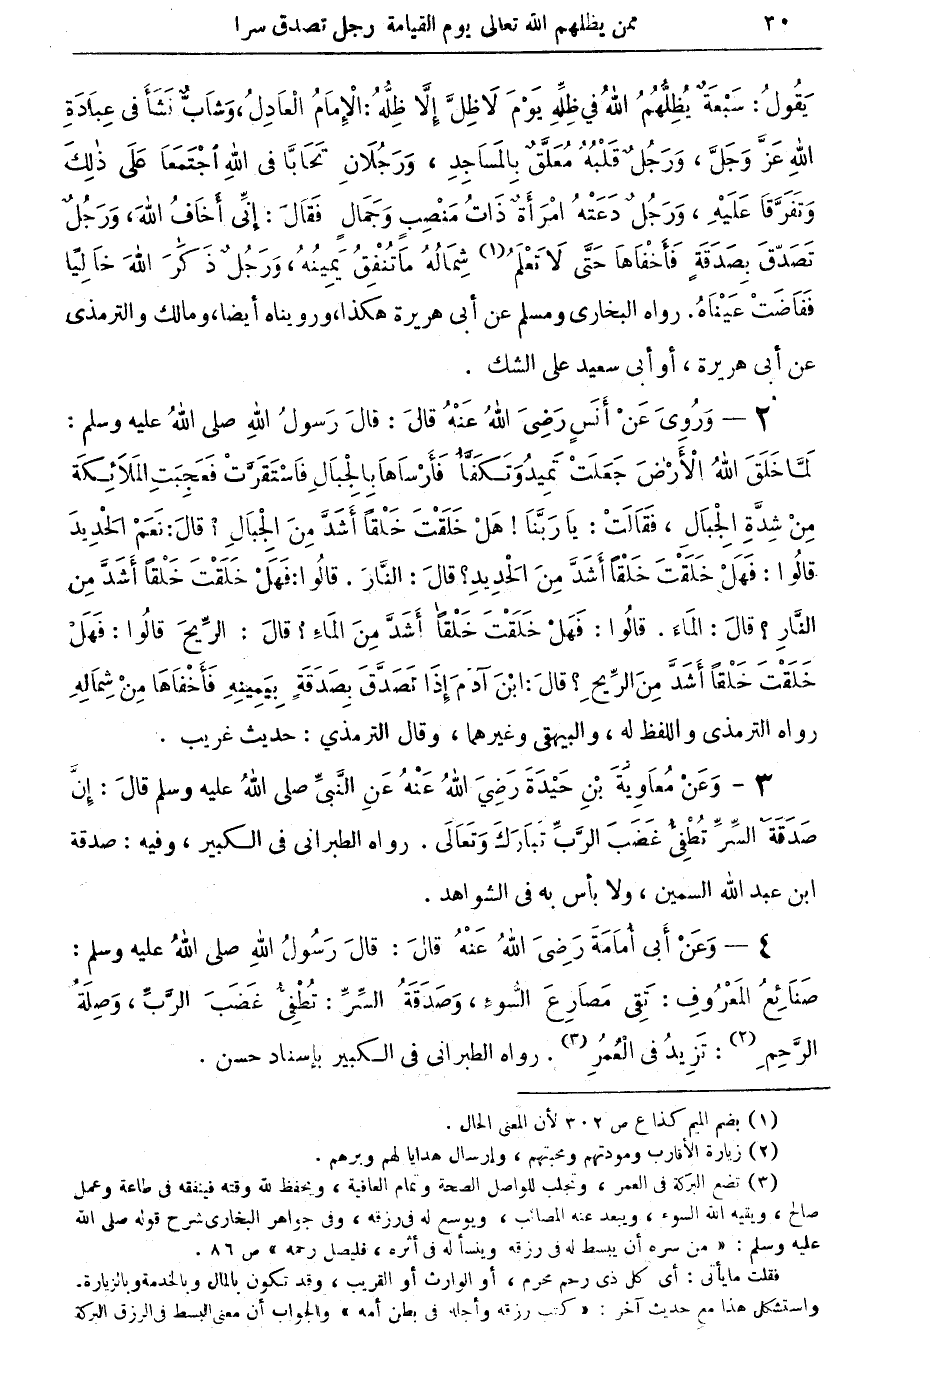 ٣٠ ممن يظلهم الله تعالى يوم القيامة رجل تصدق سرا
يَقُولُ: سَبْعَةٌ يُظِلُّهُمُ اللهُ فِي ظِلِّهِ يَوْمَ لَا ظِلَّ إِلَّا ظِلُّهُ: الْإِمَامُ الْعَادِلُ، وَشَابٌّ نَشَأَ فِى عِبَادَةِ
اللهِ عَزَّ وَجَلَّ، وَرَجُلٌ قَلْبُهُ مُعَلَّقٌ بِالْمَسَاجِدِ، وَرَجُلَانِ تَحَابَّا فِى اللهِ اجْتَمَعَا عَلَى ذٰلِكَ
وَتَفَرَّقَا عَلَيْهِ، وَرَجُلٌ دَعَتْهُ امْرَأَةٌ ذَاتُ مَنْصِبٍ وَجَمَالٍ فَقَالَ: إِنِّى أَخَافُ اللهَ، وَرَجُلٌ
تَصَدَّقَ بِصَدَقَةٍ فَأَخْفَاهَا حَتَّى لَا تَعْلَمُ (١) شِمَالُهُ مَا تُنْفِقُ يَمِينُهُ، وَرَجُلٌ ذَكَرَ اللهَ خَالِيًا
فَفَاضَتْ عَيْنَاهُ. رواه البخارى ومسلم عن أبى هريرة هكذا، ورويناه أيضا، ومالك والترمذى
عن أبى هريرة، أو أبى سعيد على الشك.
٢ — وَرُوِىَ عَنْ أَنَسٍ رَضِىَ اللهُ عَنْهُ قالَ: قالَ رَسُولُ اللهِ صلى اللهُ عليه وسلم:
لَمَّا خَلَقَ اللهُ الْأَرْضَ جَعَلَتْ تَمِيدُ وَتَكَفَّأُ فَأَرْسَاهَا بِالْجِبَالِ فَاسْتَقَرَّتْ فَعَجِبَتِ الْمَلَائِكَة
مِنْ شِدَّةِ الْجِبَالِ، فَقَالَتْ: يَا رَبَّنَا! هَلْ خَلَقْتَ خَلْقاً أَشَدَّ مِنَ الْجِبَالِ؟ قالَ: نَعَمْ الْحَدِيدَ
قالُوا: فَهَلْ خَلَقْتَ خَلْقاً أَشَدَّ مِنَ الْحَدِيدِ؟ قالَ: النَّارَ. قالُوا: فَهَلْ خَلَقْتَ خَلْقاً أَشَدَّ مِنَ
النَّارِ؟ قالَ: الْمَاءَ. قالُوا: فَهَلْ خَلَقْتَ خَلْقاً أَشَدَّ مِنَ الْمَاءِ؟ قالَ: الرِّيحَ قالُوا: فَهَلْ
خَلَقْتَ خَلْقاً أَشَدَّ مِنَ الرِّيحِ؟ قالَ: ابْنَ آدَمَ إِذَا تَصَدَّقَ بِصَدَقَةٍ بِيَمِينِهِ فَأَخْفَاهَا مِنْ شِمَالِهِ
رواه الترمذى واللفظ له، والبيهقى وغيرهما، وقال الترمذي: حديث غريب.
٣ - وَعَنْ مُعَاوِيَةَ بْنِ حَيْدَةَ رَضِيَ اللهُ عَنْهُ عَنِ النَّبِىِّ صلى اللهُ عليه وسلم قالَ: إِنَّ
صَدَقَةَ السِّرِّ تُطْفِئُ غَضَبَ الرَّبِّ تَبَارَكَ وَتَعَالَى. رواه الطبرانى فى الكبير، وفيه: صدقة
ابن عبد الله السمين، ولا بأس به فى الشواهد.
٤ — وَعَنْ أَبِى أُمَامَةَ رَضِىَ اللهُ عَنْهُ قالَ: قالَ رَسُولُ اللهِ صلى اللهُ عليه وسلم:
صَنَائِعُ الْمَعْرُوفِ: تَقِى مَصَارِعَ السُّوءِ، وَصَدَقَةُ السِّرِّ: تُطْفِئُ غَضَبَ الرَّبِّ، وَصِلَةُ
الرَّحِمِ (٢): تَزِيدُ فى الْعُمُرِ (٣). رواه الطبرانى فى الكبير بإسناد حسن.
(١) بضم الميم كذا ع ص ٣٠٢ لأن المعنى الحال.
(٢) زيارة الأقارب ومودتهم ومحبتهم، وإرسال هدايا لهم وبرهم.
(٣) تضع البركة فى العمر، وتجلب للواصل الصحة وتمام العافية، ويحفظ لله وقته فينفقه فى طاعة وعمل
صالح، ويقيه الله السوء، ويبعد عنه المصائب، ويوسع له فى رزقه، وفى جواهر البخارى شرح قوله صلى الله
عليه وسلم: « من سره أن يبسط له فى رزقه وينسأ له فى أثره، فليصل رحمه » ص ٨٦.
فقلت ما يأتى: أى كل ذى رحم محرم، أو الوارث أو القريب، وقد تكون بالمال وبالخدمة وبالزيارة.
واستشكل هذا مع حديث آخر: « كتب رزقه وأجله فى بطن أمه » والجواب أن معنى البسط فى الرزق البركة